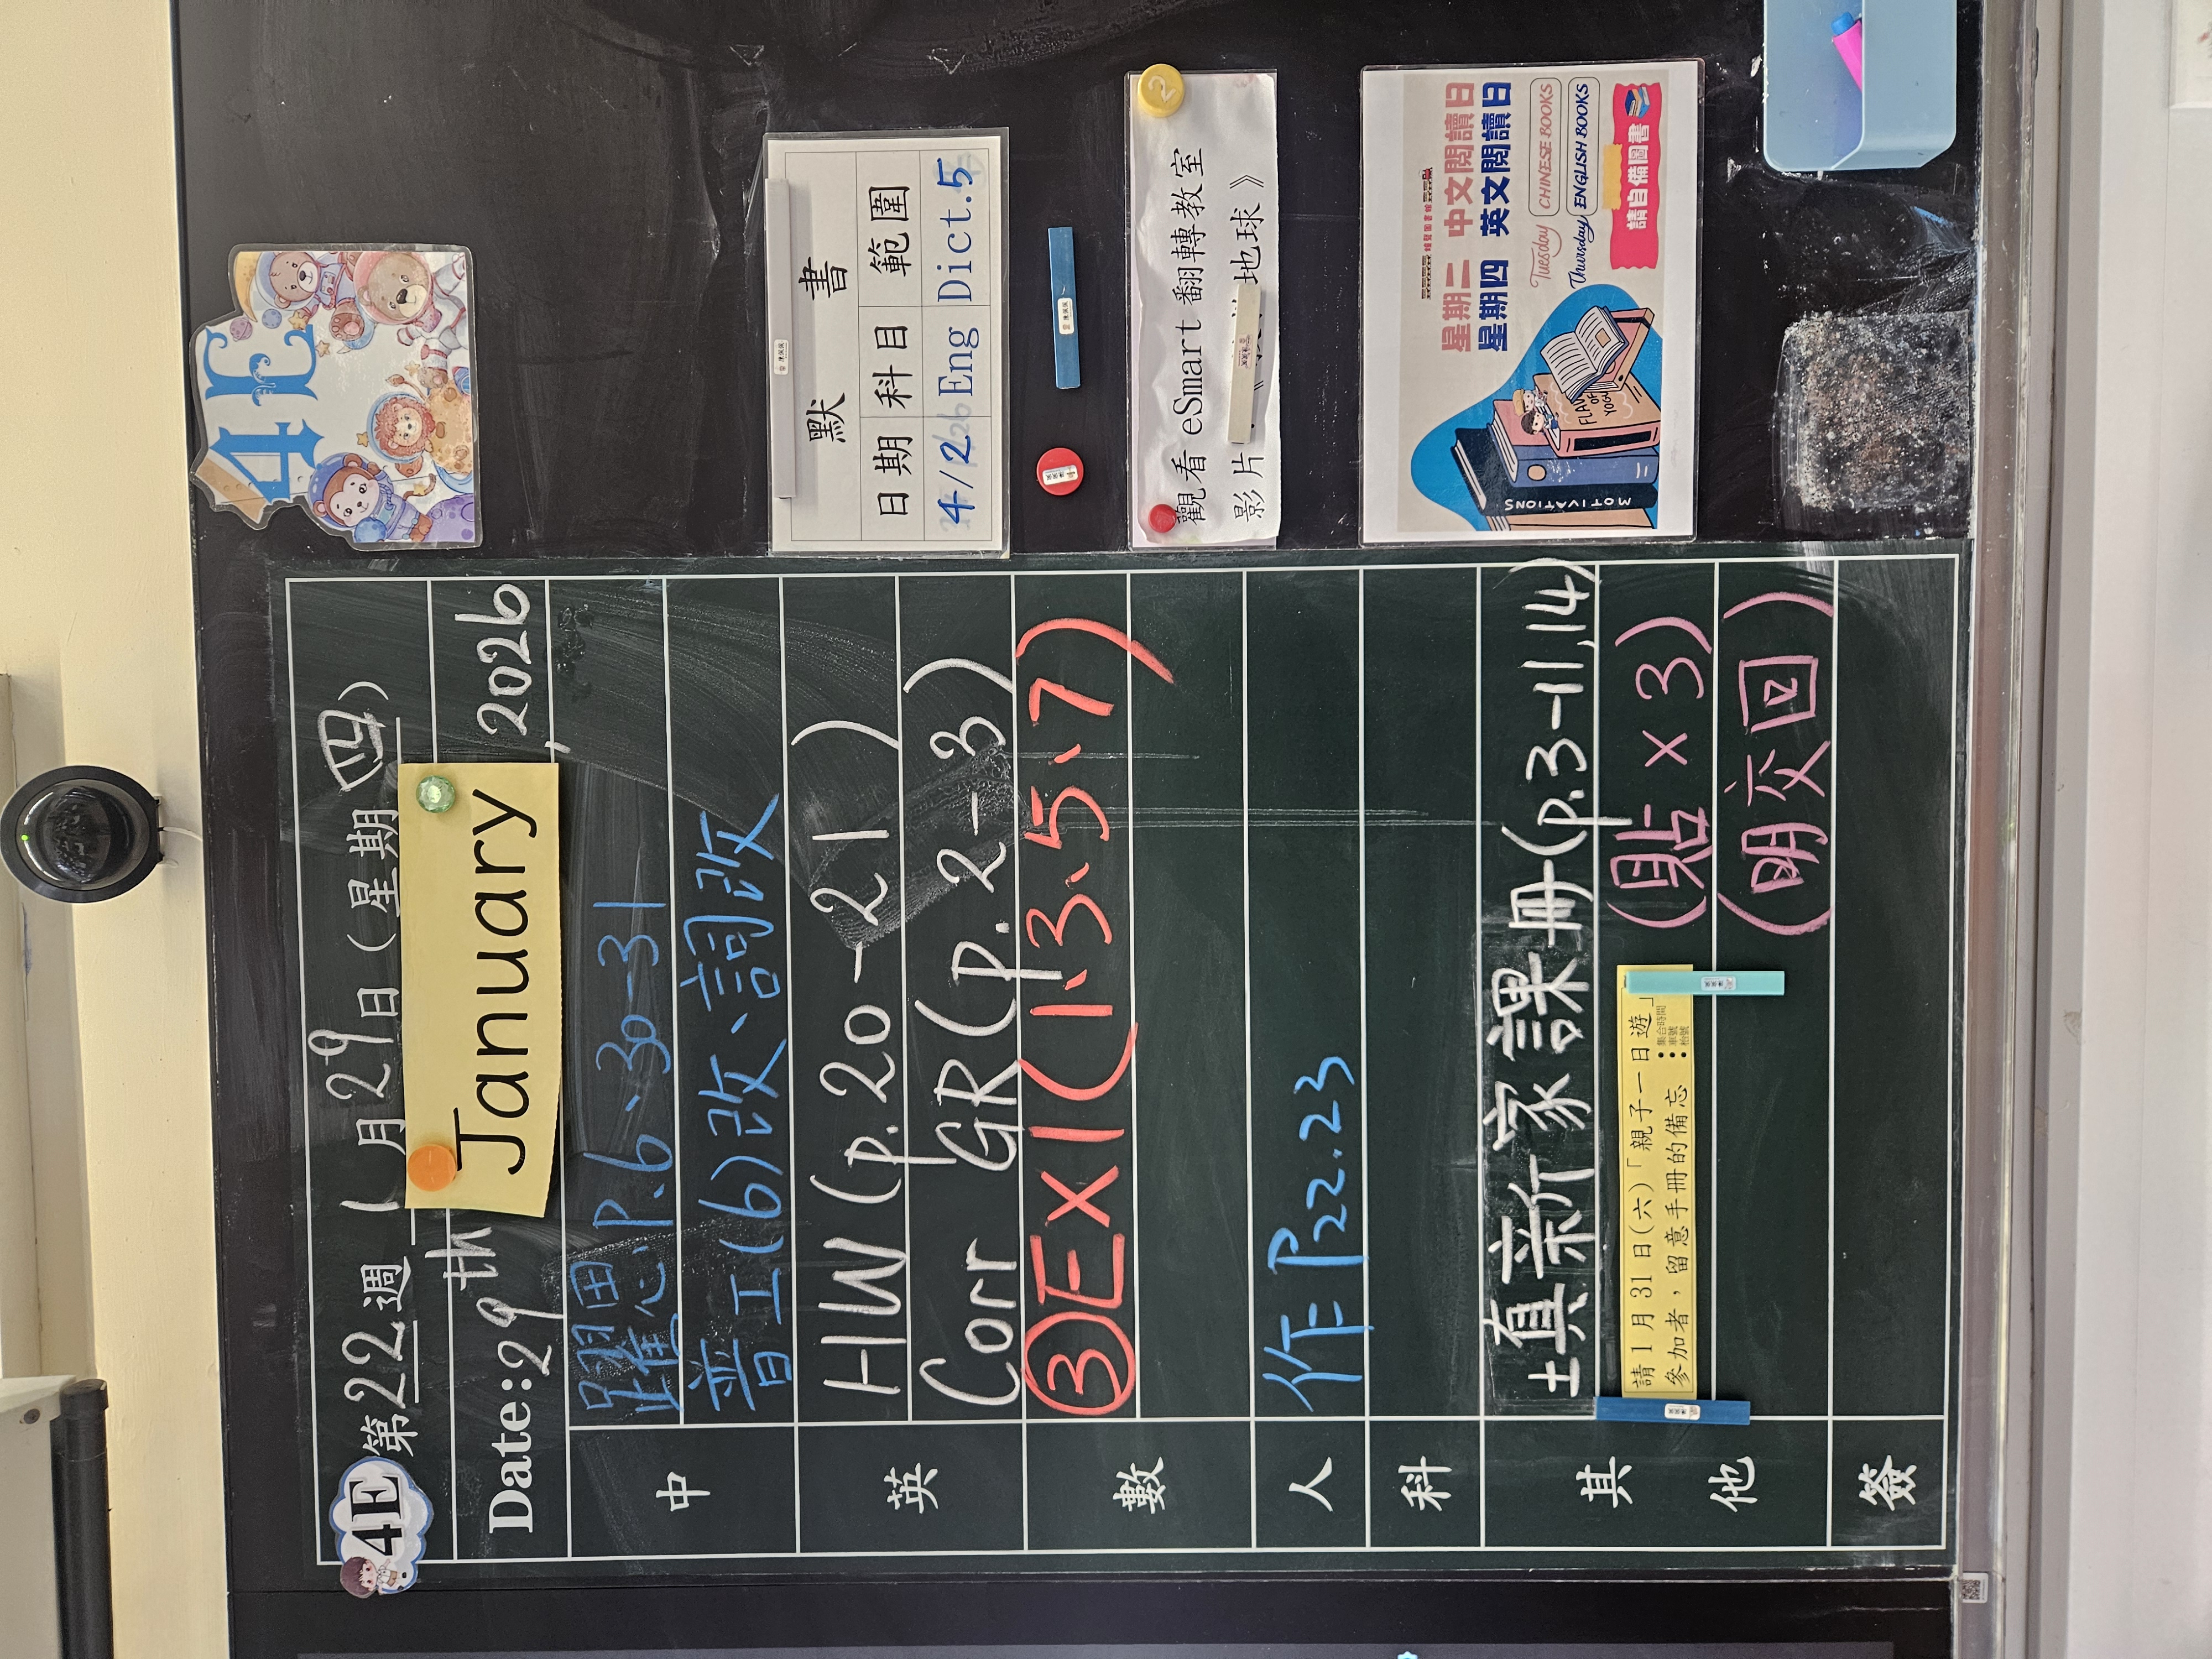 4E
4E 第22週 1月29日(星期四)
Date: 29th January, 2026
中
躍思 P.6、30-31
普工(6)改、詞改
英
HW (p.20-21)
Corr GR (p.2-3)
數
③Ex1(1、3、5、7)
人
作 P22.23
科
其他
填新家課冊(p.3-11,14)
請1月31日(六)「親子一日遊」
參加者,留意手冊的備忘
• 集合時間
• 車號
(貼×3)
(明交回)
簽
默 書
日期 科目 範圍
4/2 Eng Dict.5
2
觀看 eSmart 翻轉教室
影片 地球》
星期二 中文閱讀日
星期四 英文閱讀日
Tuesday CHINESE BOOKS
Thursday ENGLISH BOOKS
請自備圖書
MOTIVATIONS